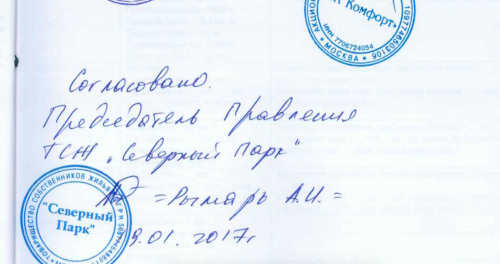 Комфорт"
АКЦИОН
1097746503106
ИНН 7706724054
* МОСКВА *
Согласовано.
Председатель Правления
ТСЖ „Северный Парк"
= Рымарь А.И. =
"Северный
Парк"
ТОВАРИЩЕСТВО СОБСТВЕННИКОВ ЖИЛЬЯ
.01.2017г